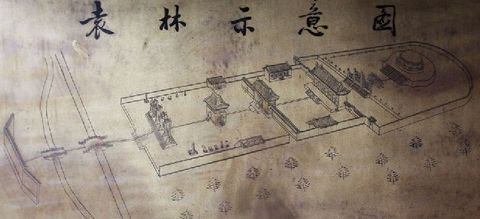 袁林示意圖